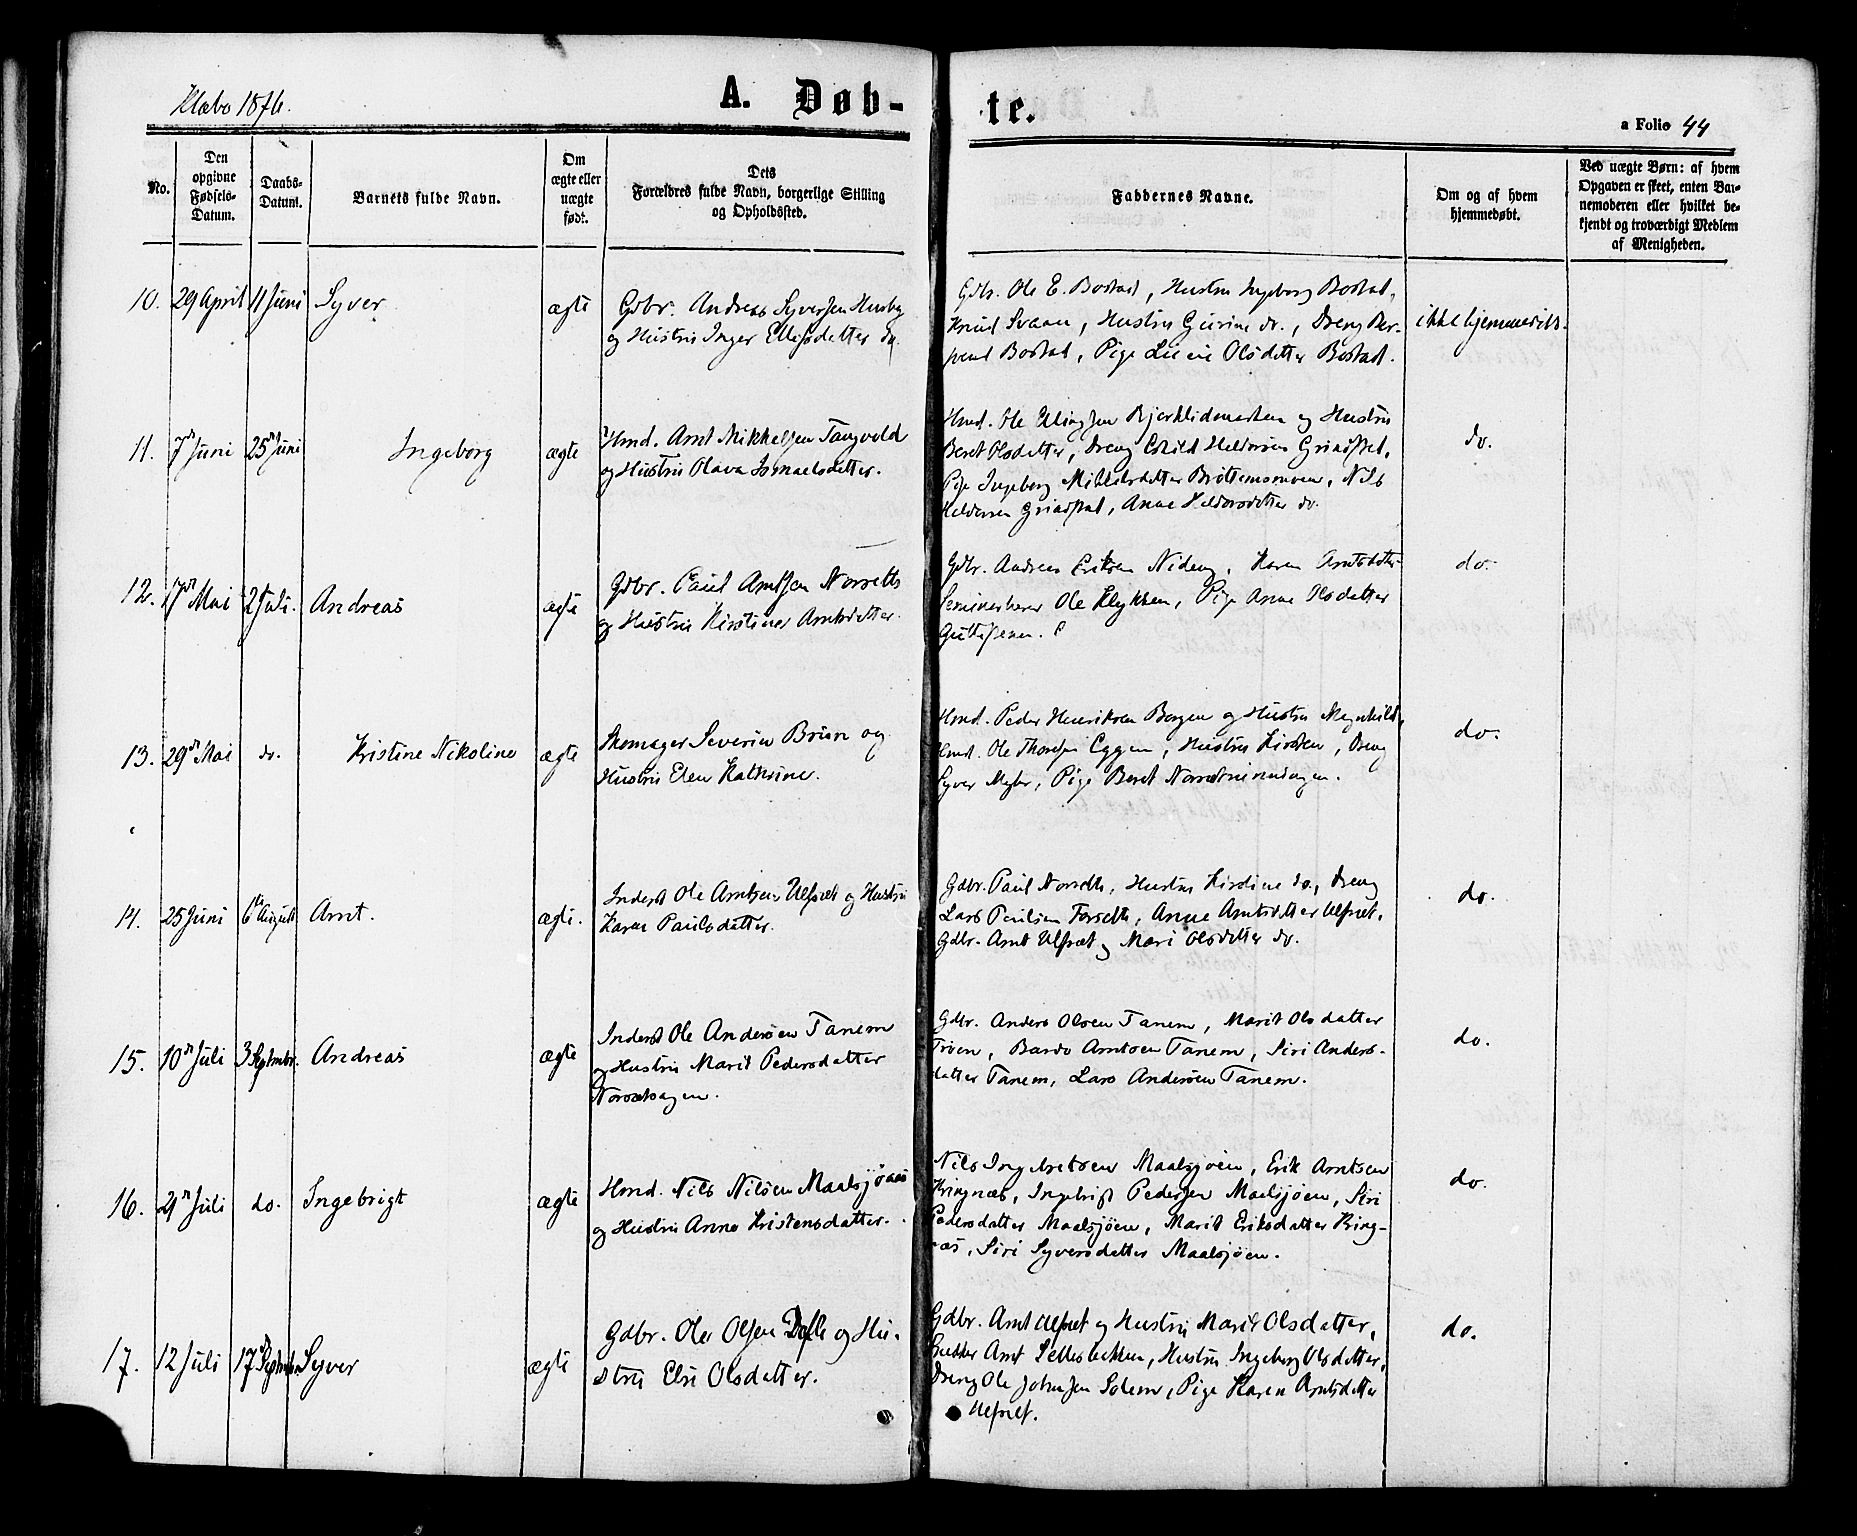 Klæbo 1876.
A. Døb-
te.
a Folio 44
No.
Den opgivne Fødsels-Datum.
Daabs-Datum.
Barnets fulde Navn.
Om ægte eller uægte født.
Dets Forældres fulde Navn, borgerlige Stilling og Opholdssted.
Faddernes Navne.
Om og af hvem hjemmedøbt.
Ved uægte Børn: af hvem Opgaven er skeet, enten Barnemoderen eller hvilket bekjendt og troværdigt Medlem af Menigheden.
10. 29 April 11 Juni Syver ægte
Gdbr. Andreas Syversen Husby
og Hustru Inger Ellifsdatter do.
Gdbr. Ole E. Bostad, Hustru Ingeborg Bostad,
Knud Svaan, Hustru Gurine do., Dreng
Bostad, Pige Olsdatter Bostad.
ikke hjemmedøb.
11. 7de Juni 25de Juni Ingeborg ægte
Hmd. Arnt Mikkelsen Tangvold
og Hustru Olava Ismaelsdatter.
Hmd. Ole Ellingsen og Hustru
Beret Olsdatter, Dreng Eskild
Pige Ingeborg Mikkelsdatter, Nils
Anne do.
do.
12. 17de Mai 2 Juli. Andreas ægte
Gdbr. Paul Arntsen Norseth
og Hustru Kirstine Arntsdatter.
Gdbr. Andreas Eriksen Nideng, Karen Arntsdatter
Ole Klykken, Pige Anne Olsdatter
do.
13. 29de Mai do. Kristine Nikoline ægte
Skomager Severin Bruun og
Hustru Elen Kathrine.
Hmd. Peder Henriksen Borgen og Hustru Magnhild,
Hmd. Ole Eggen, Hustru Kirsten, Dreng
Syver, Pige Beret
do.
14. 25 Juni 6te August Arnt. ægte.
Inderst Ole Arntsen Ulfset og Hustru
Karen Paulsdatter.
Gdbr. Paul Norseth, Hustru Kirstine do., Dreng
Lars Paulsen Forseth, Anne Arntsdatter Ulfset,
Gdbr. Arnt Ulfset og Mari Olsdatter do.
do.
15. 10de Juli 3 Septembr. Andreas ægte
Inderst Ole Andersen Tanem
og Hustru Marit Pedersdatter
Gdbr. Anders Olsen Tanem, Marit Olsdatter
Troen, Bardo Arntsen Tanem, Siri Anders-
datter Tanem, Lars Andersen Tanem.
do.
16. 21de Juli do. Ingebrigt ægte
Hmd. Nils Nilsen Maalsjøen
og Hustru Anne Kristensdatter.
Nils Ingebretsen Maalsjøen, Erik Arntsen
Kringnæs, Ingebrigt Pedersen Maalsjøen, Siri
Pedersdatter Maalsjøen, Marit Eriksdatter Kring-
næs, Siri Syversdatter Maalsjøen.
do.
17. 12 Juli 17de Septembr. Syver ægte
Gdbr. Ole Olsen og Hu-
stru Elri Olsdatter.
Gdbr. Arnt Ulfset og Hustru Marit Olsdatter,
Arnt Sellesbakken, Hustru Ingeborg Olsdatter,
Dreng Ole Johnsen Solem, Pige Karen Arntsdatter
Ulfset.
do.